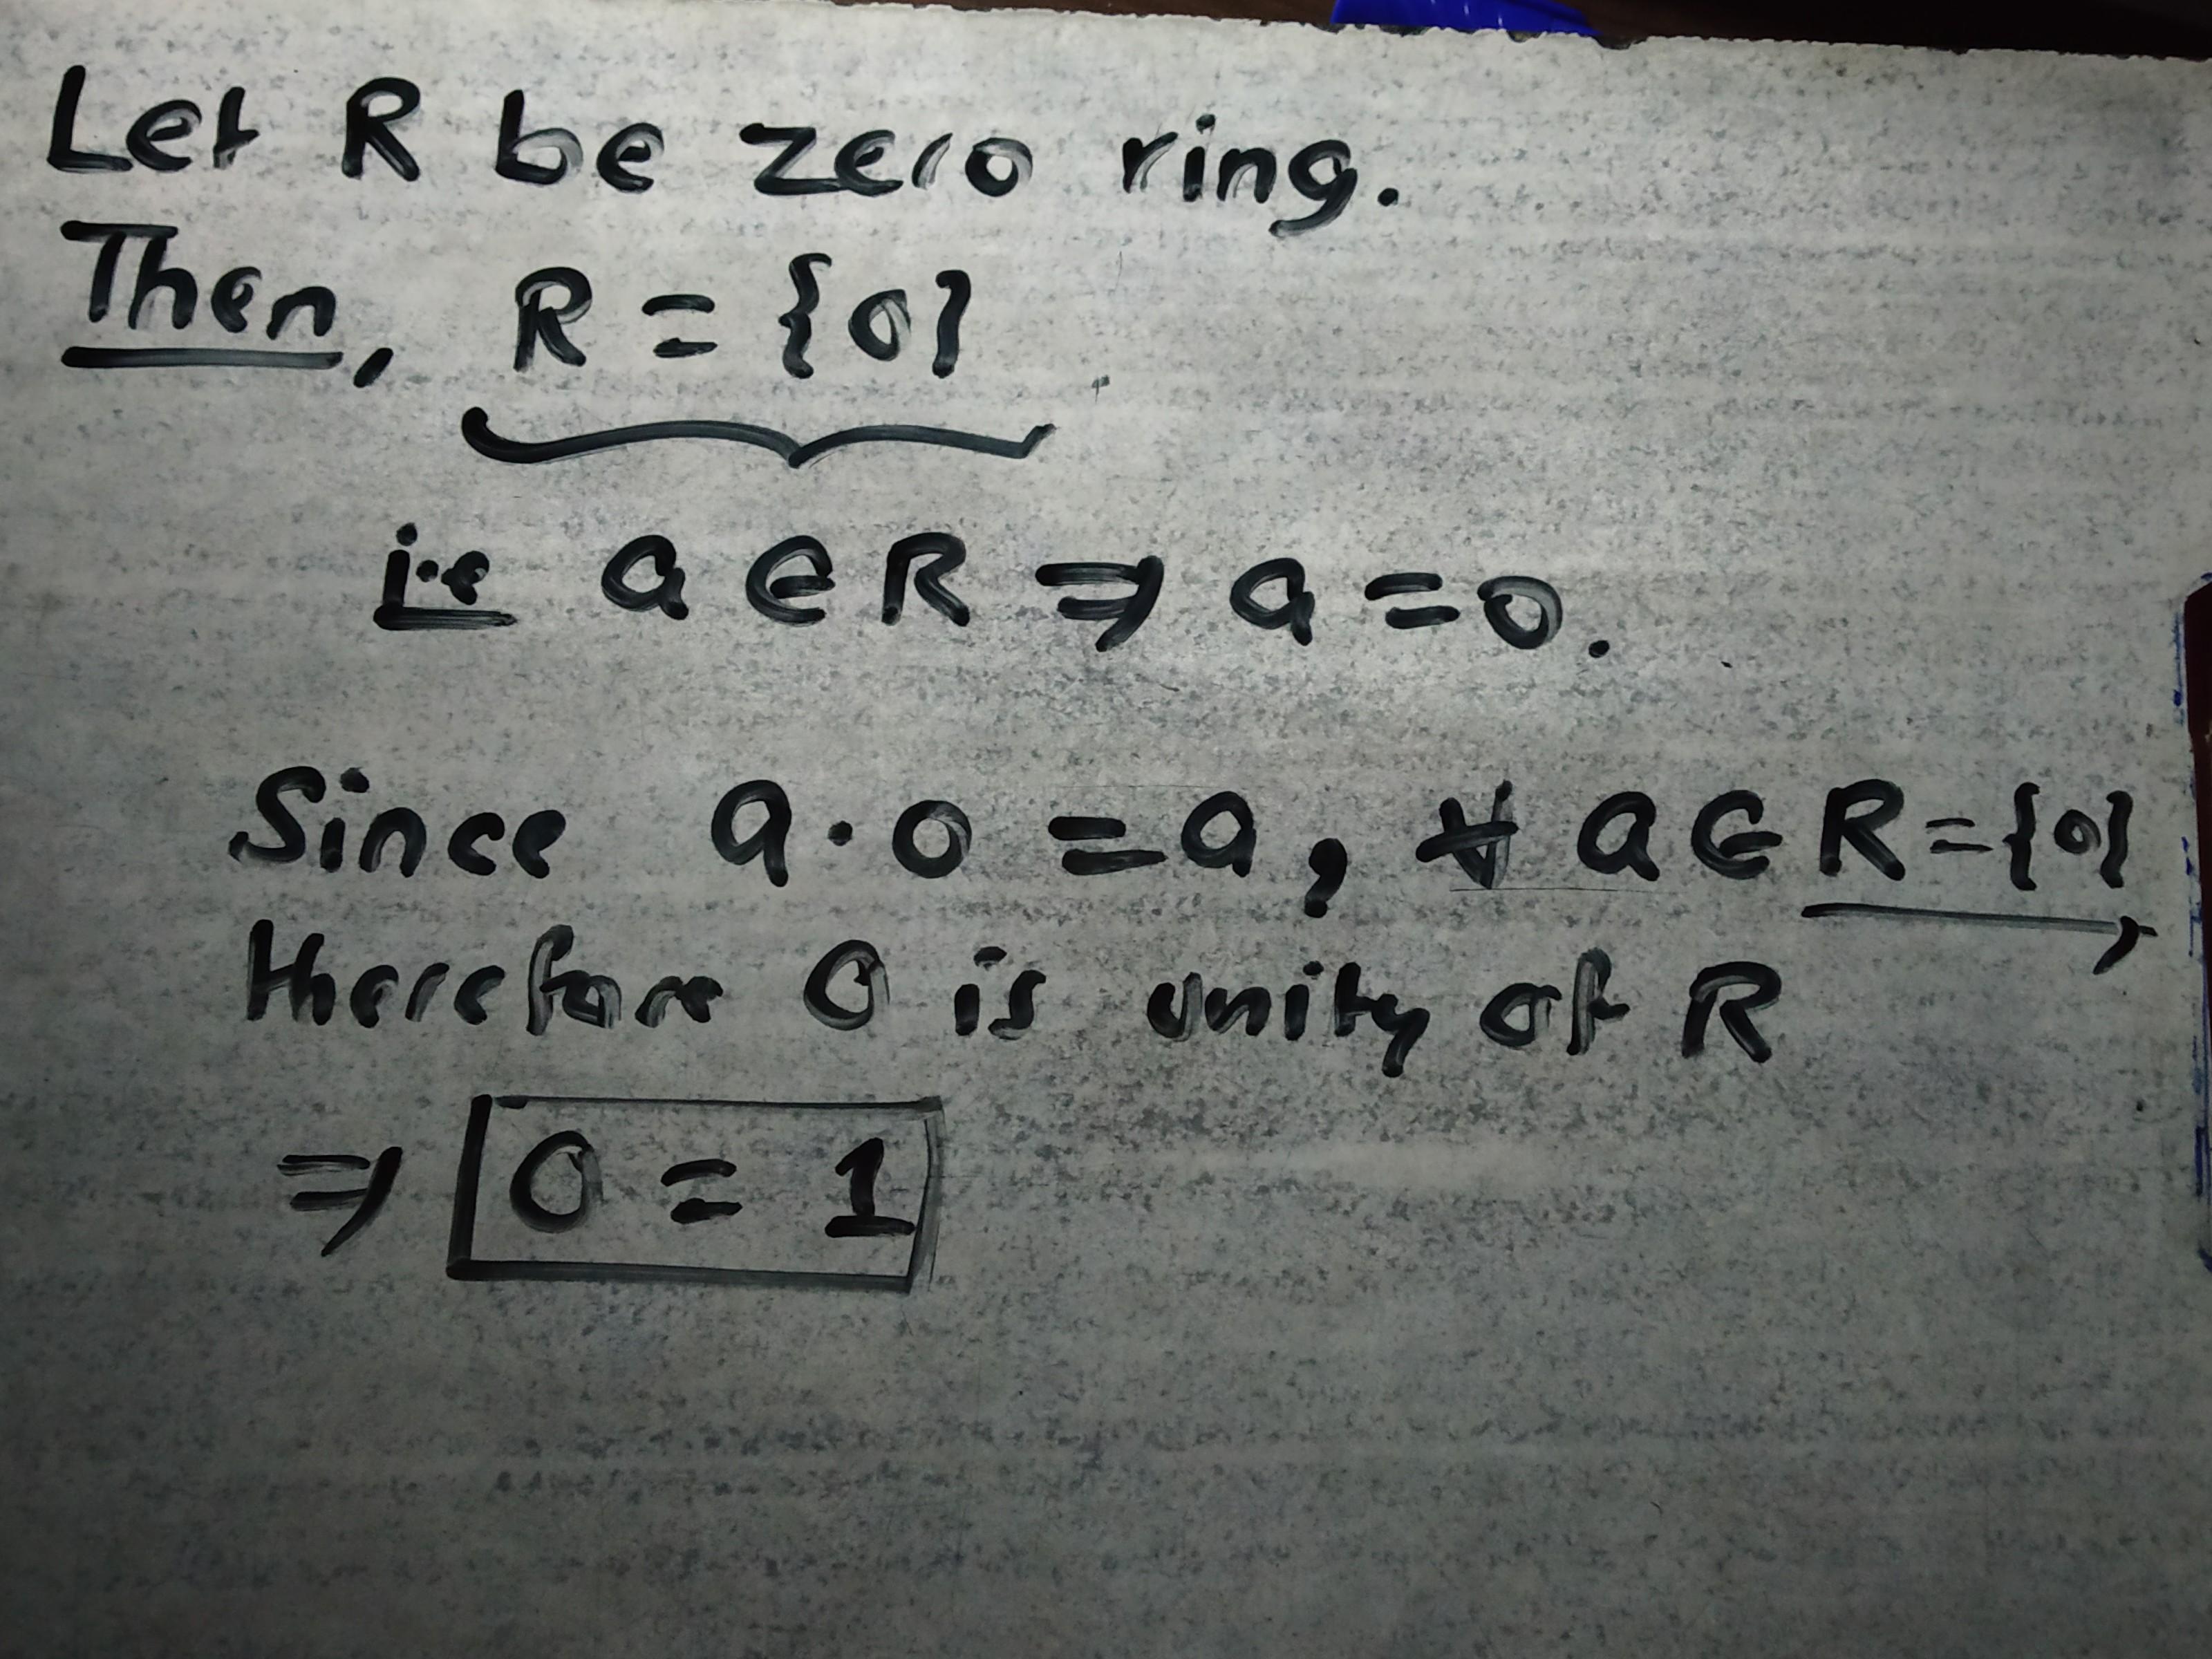 Let R be zero ring.
Then, R = {0}
i.e a ∈ R ⇒ a = 0.
Since a · 0 = a, ∀ a ∈ R = {0},
therefore 0 is unity of R
⇒ 0 = 1